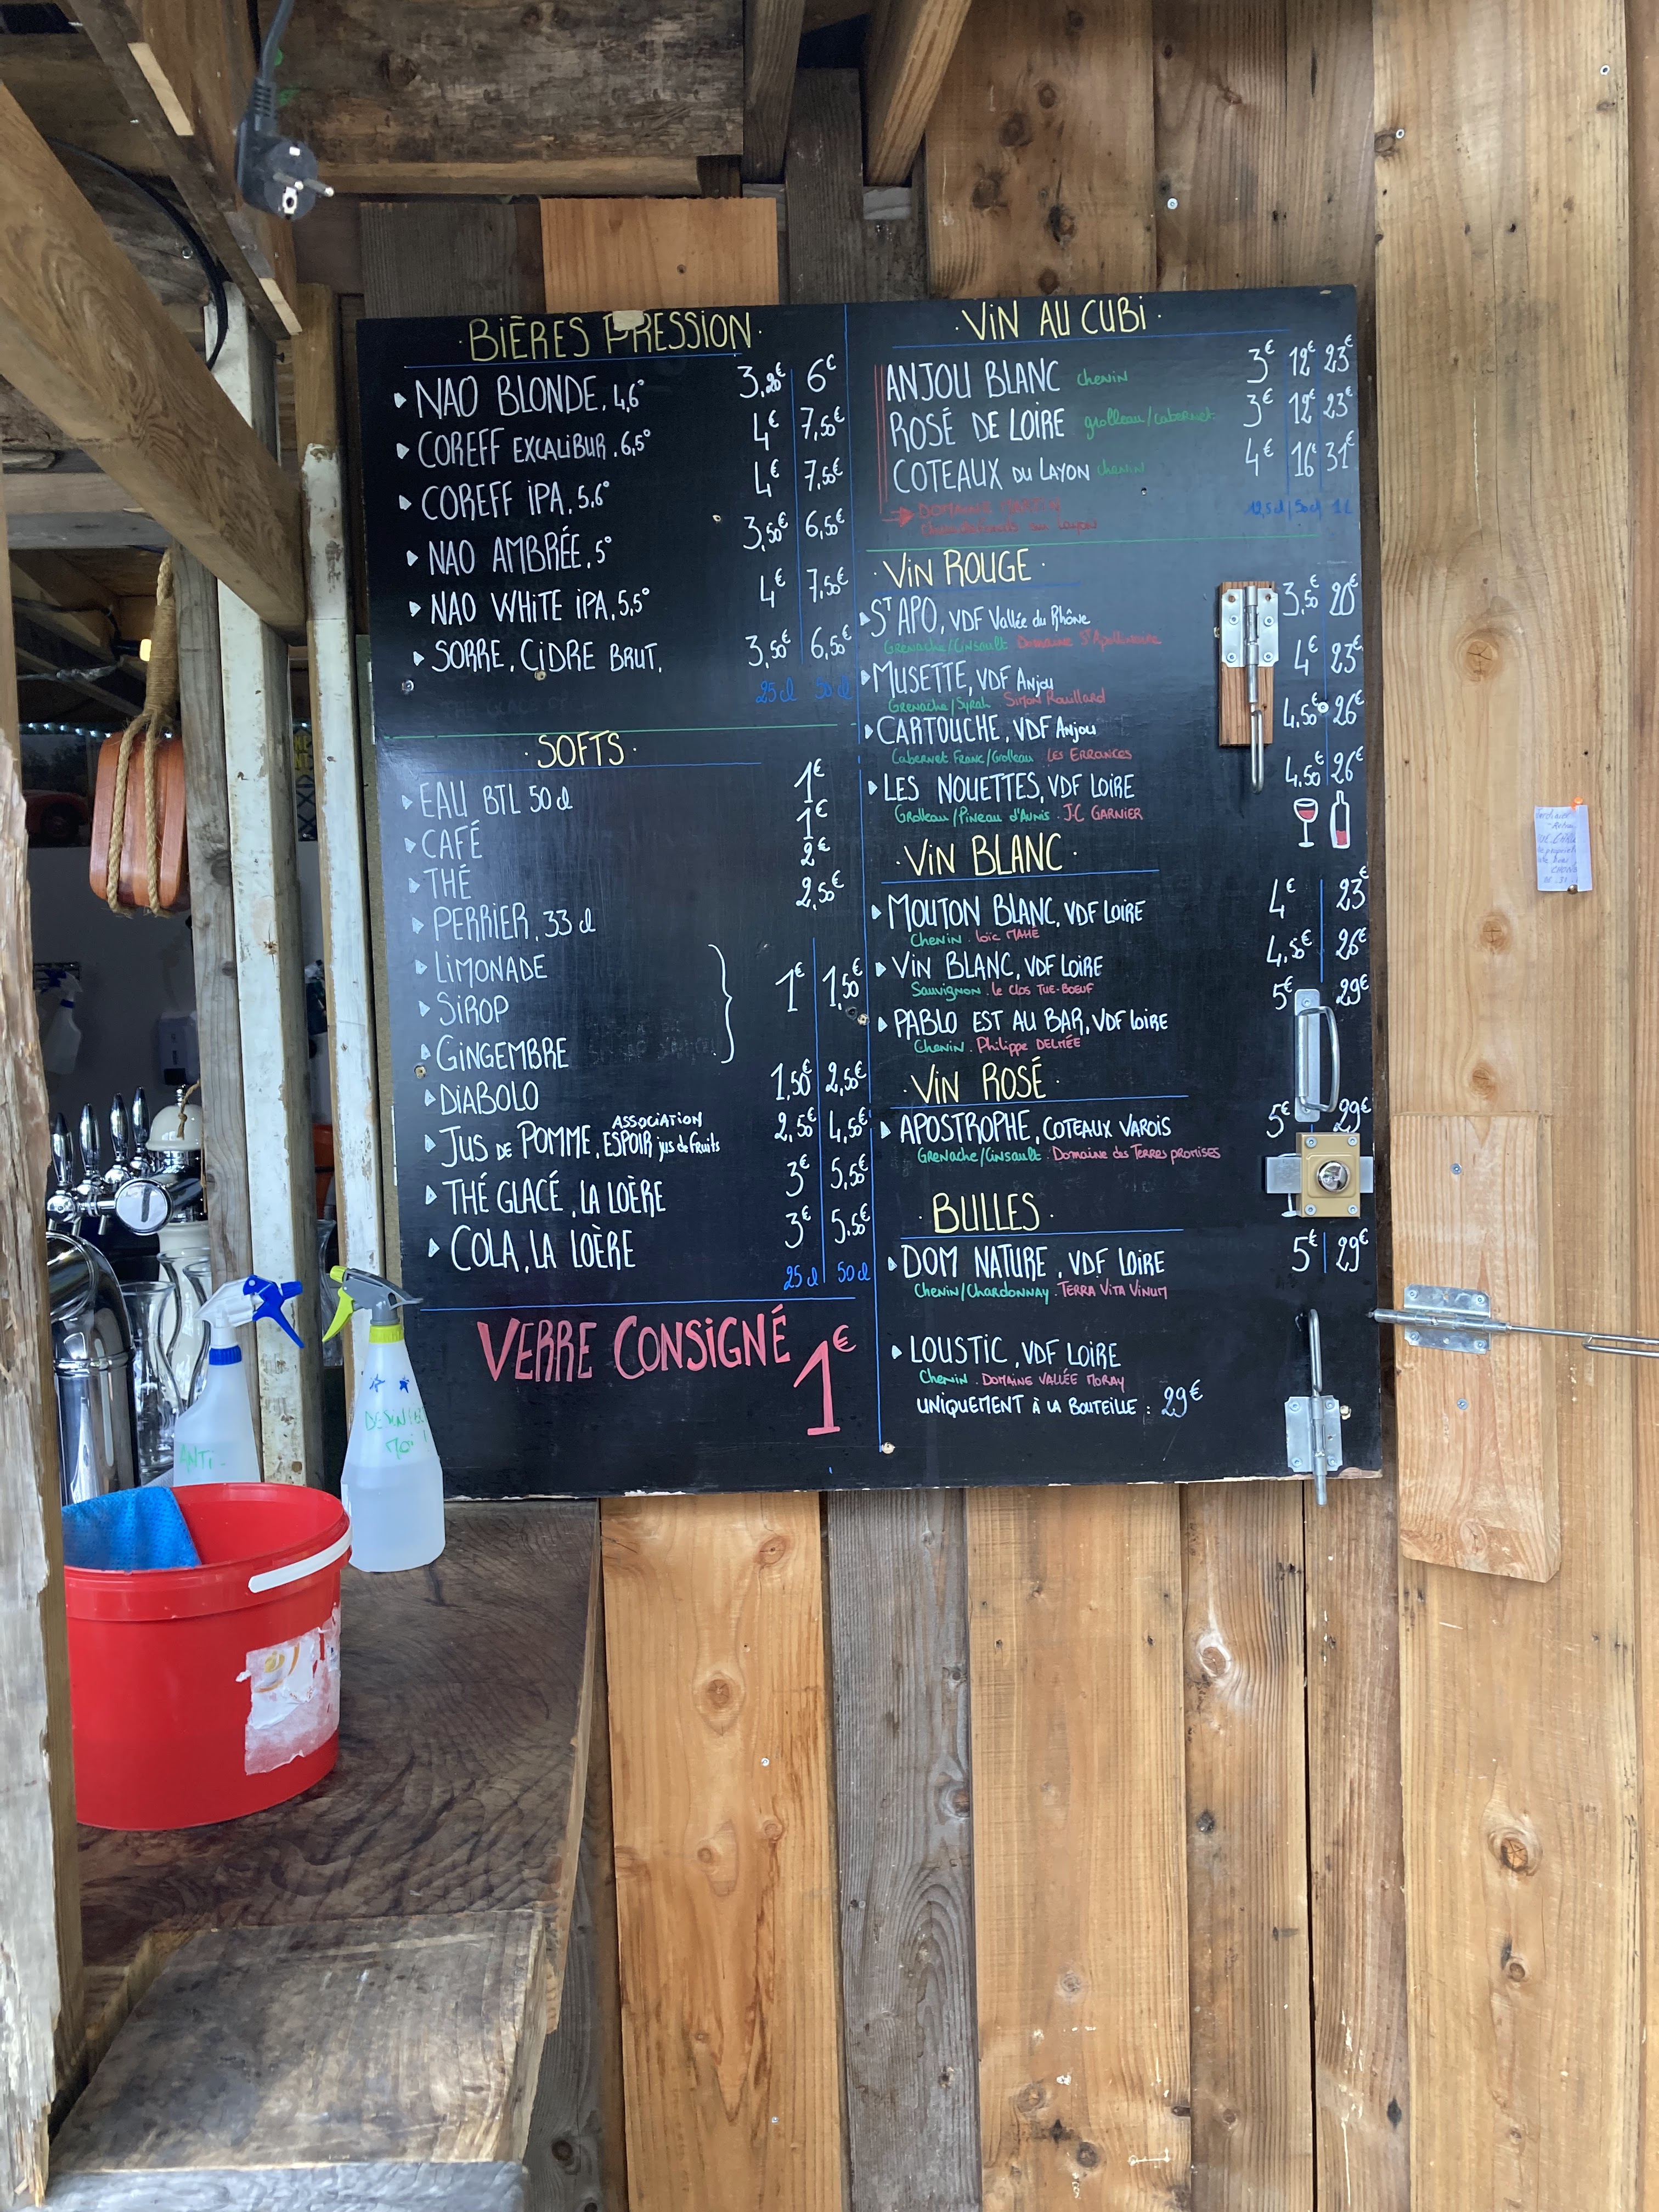 BIÈRES PRESSION
NAO BLONDE. 4,6° 3,20€ 6€
COREFF EXCALIBUR. 6,5° 4€ 7,50€
COREFF IPA. 5,6° 4€ 7,50€
NAO AMBRÉE. 5° 3,50€ 6,50€
NAO WHITE IPA. 5,5° 4€ 7,50€
SORRE, CIDRE BRUT. 3,50€ 6,50€
25 cl 50 cl
· SOFTS ·
EAU BTL 50 cl 1€
CAFÉ 1€
THÉ 2€
PERRIER. 33 cl 2,50€
LIMONADE
SIROP 1€ 1,50€
GINGEMBRE
DIABOLO 1,50€ 2,50€
JUS DE POMME, ASSOCIATION ESPOIR jus de fruits 2,50€ 4,50€
THÉ GLACÉ, LA LOÈRE 3€ 5,50€
COLA, LA LOÈRE 3€ 5,50€
25 cl 50 cl
VERRE CONSIGNÉ 1€
· VIN AU CUBI ·
ANJOU BLANC chenin 3€ 12€ 23€
ROSÉ DE LOIRE grolleau/cabernet 3€ 12€ 23€
COTEAUX DU LAYON chenin 4€ 16€ 31€
DOMAINE 12,5 cl 50 cl 1 L
du Layon
· VIN ROUGE ·
ST APO, VDF Vallée du Rhône 3,50€ 20€
Grenache/Cinsault Domaine St Apollinaire
MUSETTE, VDF Anjou 4€ 23€
Grenache/Syrah Simon Rouillard
CARTOUCHE, VDF Anjou 4,50€ 26€
Cabernet Franc/Grolleau LES ERRANCES
LES NOUETTES, VDF LOIRE 4,50€ 26€
Grolleau/Pineau d'Aunis · J-C GARNIER
· VIN BLANC ·
MOUTON BLANC, VDF LOIRE 4€ 23€
Chenin. Loïc MAHE
VIN BLANC, VDF LOIRE 4,50€ 26€
Sauvignon. le Clos TUE-BOEUF
PABLO EST AU BAR, VDF loire 5€ 29€
Chenin. Philippe DELMÉE
· VIN ROSÉ ·
APOSTROPHE, COTEAUX VAROIS 5€ 29€
Grenache/Cinsault. Domaine des Terres promises
· BULLES ·
DOM NATURE, VDF LOIRE 5€ 29€
Chenin/Chardonnay. TERRA VITA VINUM
LOUSTIC, VDF LOIRE
Chenin. DOMAINE VALLÉE MORAY
UNIQUEMENT À LA BOUTEILLE : 29€
ANTI-
MOI !